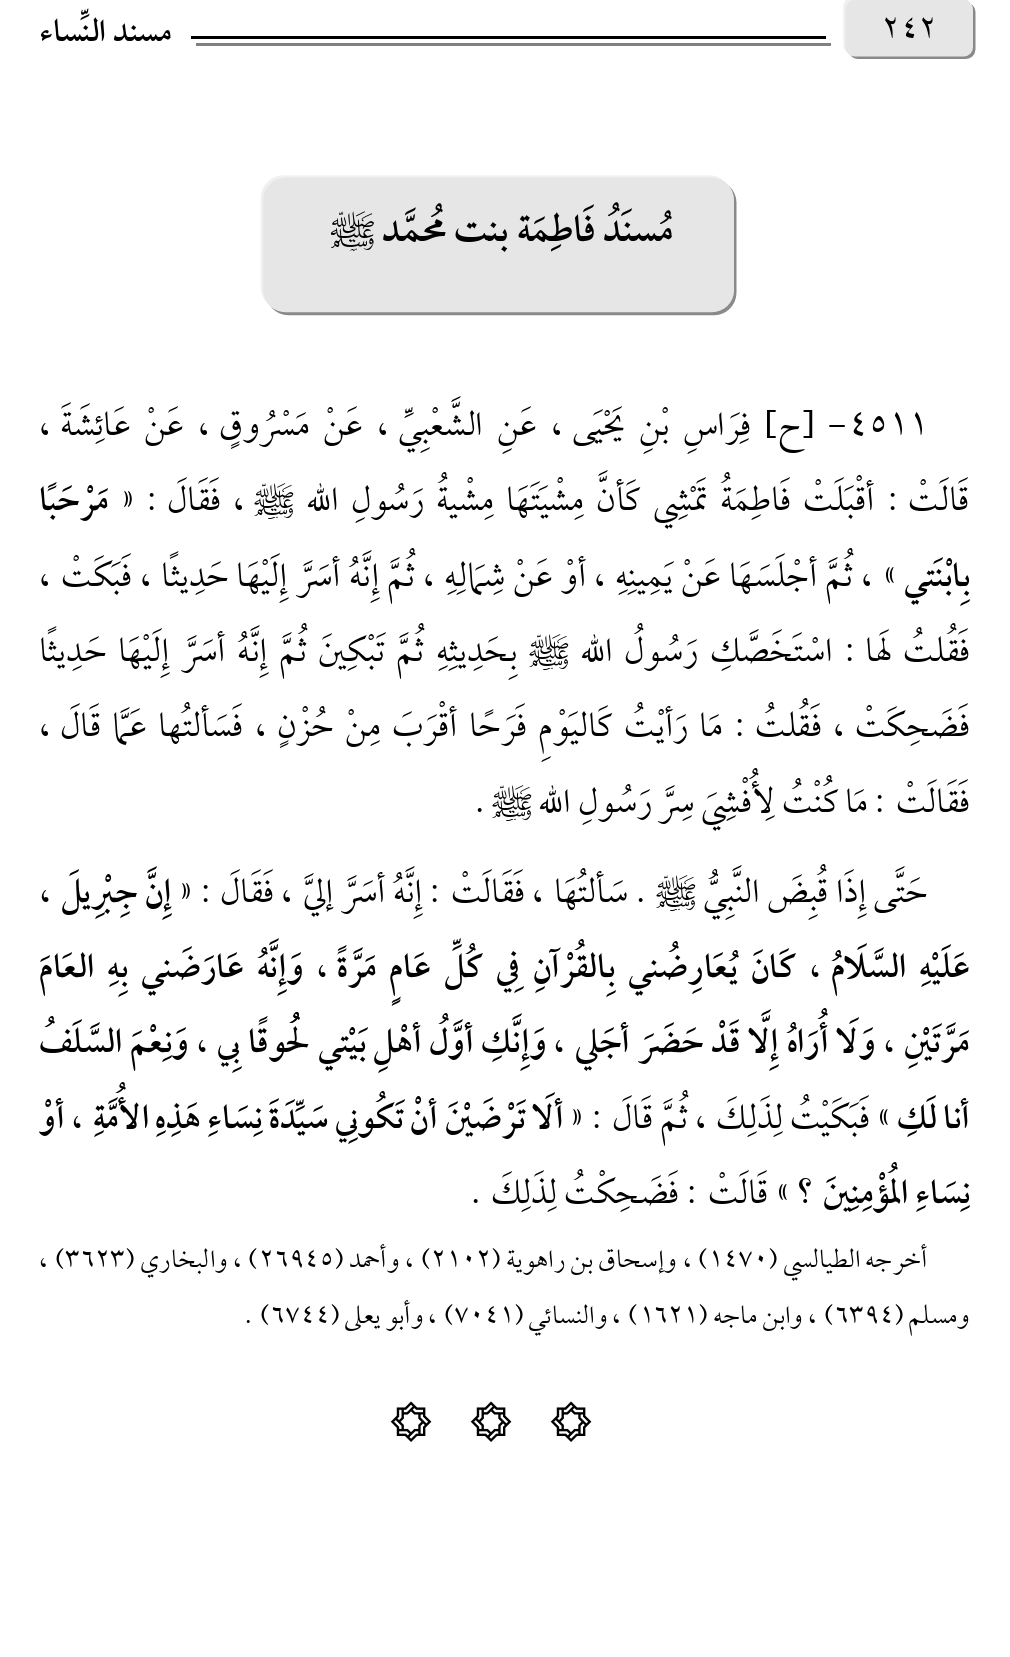 ٢٤٢
مسند النِّساء
مُسنَدُ فَاطِمَة بنت مُحمَّد ﷺ
٤٥١١- [ح] فِرَاسِ بْنِ يَحْيَى ، عَنِ الشَّعْبِيِّ ، عَنْ مَسْرُوقٍ ، عَنْ عَائِشَةَ ،
قَالَتْ : أقْبَلَتْ فَاطِمَةُ تَمْشِي كَأنَّ مِشْيَتَهَا مِشْيةُ رَسُولِ الله ﷺ ، فَقَالَ : « مَرْحَبًا
بِابْنَتي » ، ثُمَّ أجْلَسَهَا عَنْ يَمِينِهِ ، أوْ عَنْ شِمَالِهِ ، ثُمَّ إِنَّهُ أسَرَّ إِلَيْهَا حَدِيثًا ، فَبَكَتْ ،
فَقُلتُ لَها : اسْتَخَصَّكِ رَسُولُ الله ﷺ بِحَدِيثِهِ ثُمَّ تَبْكِينَ ثُمَّ إِنَّهُ أسَرَّ إِلَيْهَا حَدِيثًا
فَضَحِكَتْ ، فَقُلتُ : مَا رَأيْتُ كَاليَوْمِ فَرَحًا أقْرَبَ مِنْ حُزْنٍ ، فَسَألتُها عَمَّا قَالَ ،
فَقَالَتْ : مَا كُنْتُ لِأُفْشِيَ سِرَّ رَسُولِ الله ﷺ .
حَتَّى إِذَا قُبِضَ النَّبِيُّ ﷺ . سَألتُهَا ، فَقَالَتْ : إِنَّهُ أسَرَّ إليَّ ، فَقَالَ : « إِنَّ جِبْرِيلَ ،
عَلَيْهِ السَّلَامُ ، كَانَ يُعَارِضُني بِالقُرْآنِ فِي كُلِّ عَامٍ مَرَّةً ، وَإِنَّهُ عَارَضَني بِهِ العَامَ
مَرَّتَيْنِ ، وَلَا أُرَاهُ إِلَّا قَدْ حَضَرَ أجَلي ، وَإِنَّكِ أوَّلُ أهْلِ بَيْتي لُحوقًا بِي ، وَنِعْمَ السَّلَفُ
أنا لَكِ » فَبَكَيْتُ لِذَلِكَ ، ثُمَّ قَالَ : « ألَا تَرْضَيْنَ أنْ تَكُونِي سَيِّدَةَ نِسَاءِ هَذِهِ الأُمَّةِ ، أوْ
نِسَاءِ المُؤْمِنِينَ ؟ » قَالَتْ : فَضَحِكْتُ لِذَلِكَ .
أخرجه الطيالسي (١٤٧٠) ، وإسحاق بن راهوية (٢١٠٢) ، وأحمد (٢٦٩٤٥) ، والبخاري (٣٦٢٣) ،
ومسلم (٦٣٩٤) ، وابن ماجه (١٦٢١) ، والنسائي (٧٠٤١) ، وأبو يعلى (٦٧٤٤) .